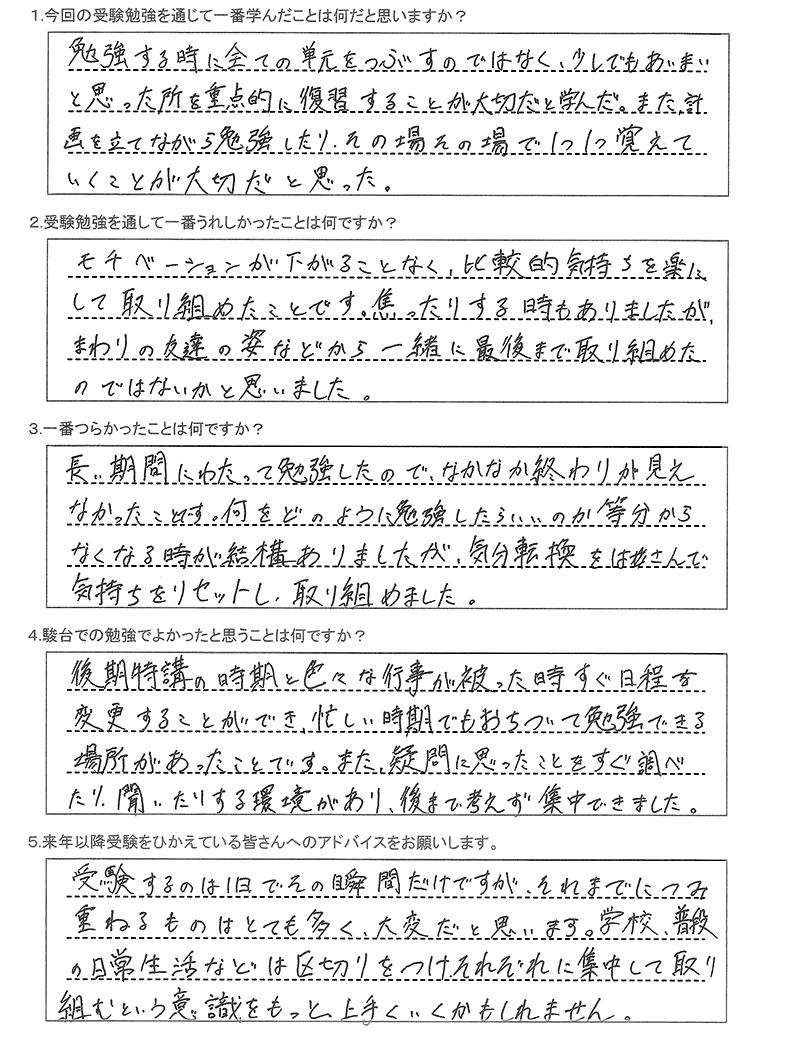 1.今回の受験勉強を通じて一番学んだことは何だと思いますか？
勉強する時に全ての単元をつぶすのではなく、少しでもあいまい
と思った所を重点的に復習することが大切だと学んだ。また、計
画を立てながら勉強したり、その場その場で1つ1つ覚えて
いくことが大切だと思った。
2.受験勉強を通して一番うれしかったことは何ですか？
モチベーションが下がることなく、比較的気持ちを楽に
して取り組めたことです。焦ったりする時もありましたが、
まわりの友達の姿などから一緒に最後まで取り組めた
のではないかと思いました。
3.一番つらかったことは何ですか？
長い期間にわたって勉強したので、なかなか終わりが見え
なかったことです。何をどのように勉強したらいいのか等分から
なくなる時が結構ありましたが、気分転換をはさんで
気持ちをリセットし、取り組めました。
4.駿台での勉強でよかったと思うことは何ですか？
後期特講の時期と色々な行事が被った時すぐ日程を
変更することができ、忙しい時期でもおちついて勉強できる
場所があったことです。また、疑問に思ったことをすぐ調べ
たり、聞いたりする環境があり、後まで考えず集中できました。
5.来年以降受験をひかえている皆さんへのアドバイスをお願いします。
受験するのは1日でその瞬間だけですが、それまでにつみ
重ねるものはとても多く、大変だと思います。学校、普段
の日常生活などは区切りをつけそれぞれに集中して取り
組むという意識をもっと、上手くいくかもしれません。